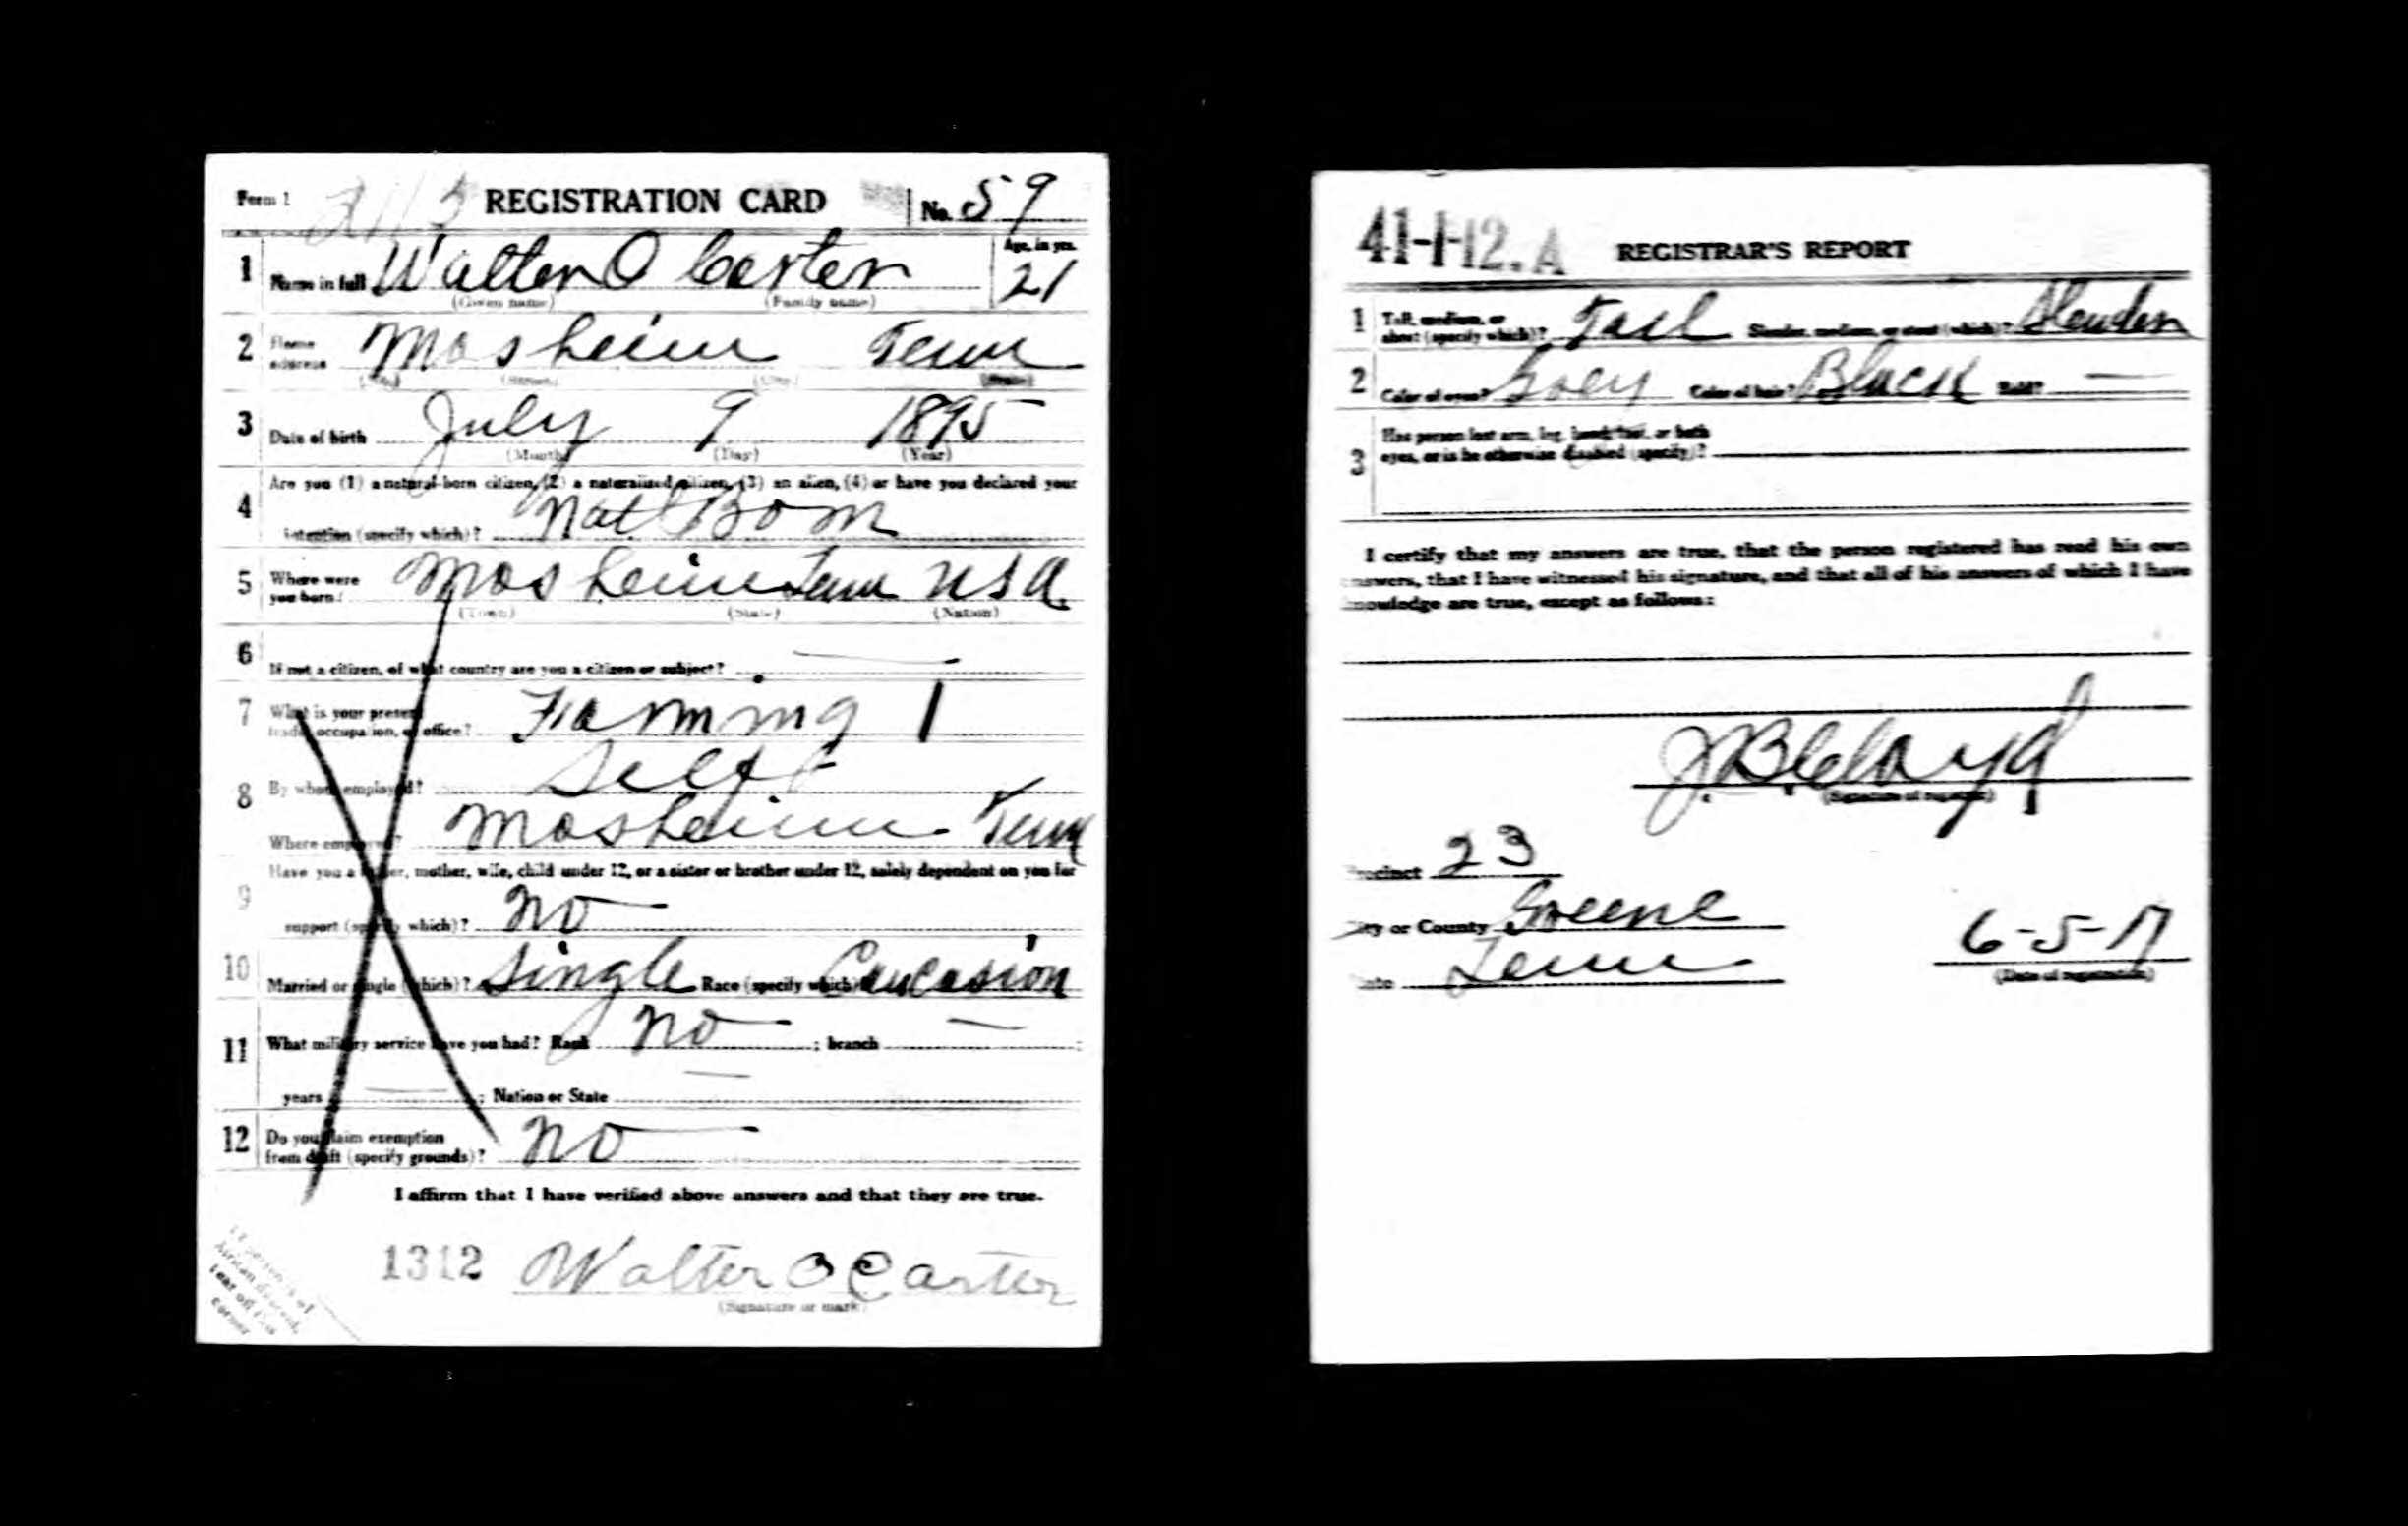 Form 1 REGISTRATION CARD No. 59
1 Name in full Walter O Carter Age, in yrs. 21
(Given name) (Family name)
2 Home address Mosheim Tenn
(No.) (Street) (City) (State)
3 Date of birth July 9 1895
(Month) (Day) (Year)
4 Are you (1) a natural-born citizen, (2) a naturalized citizen, (3) an alien, (4) or have you declared your
intention (specify which)? Nat Born
5 Where were you born? Mosheim Tenn USA
(Town) (State) (Nation)
6 If not a citizen, of what country are you a citizen or subject?
7 What is your present trade, occupation, or office? Farming 1
8 By whom employed? Self
Where employed? Mosheim Tenn
9 Have you a father, mother, wife, child under 12, or a sister or brother under 12, solely dependent on you for
support (specify which)? No
10 Married or single (which)? Single Race (specify which)? Caucasion
11 What military service have you had? Rank No ; branch ;
years ; Nation or State
12 Do you claim exemption
from draft (specify grounds)? No
I affirm that I have verified above answers and that they are true.
1312 Walter O Carter
(Signature or mark)
If person is of
African descent,
tear off this
corner
41-1-12. A REGISTRAR'S REPORT
1 Tall, medium, or short (specify which)? Tall Slender, medium, or stout (which)? Slender
2 Color of eyes? Grey Color of hair? Black Bald?
3 Has person lost arm, leg, hand, foot, or both
eyes, or is he otherwise disabled (specify)?
I certify that my answers are true, that the person registered has read his own
answers, that I have witnessed his signature, and that all of his answers of which I have
knowledge are true, except as follows:
(Signature of registrar)
Precinct 23
City or County Greene
State Tenn
6-5-17
(Date of registration)